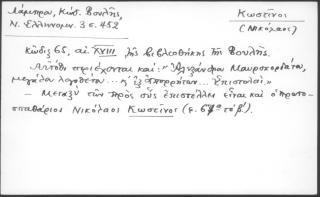 Λάμπρου, Κώδ. Βουλῆς,
Ν. Ἑλληνομν. 3 σ. 452
Κωστῖνος
(Νικόλαος)
Κῶδιξ 65, αἰ. XVIII τῆς βιβλιοθήκης τῆς Βουλῆς.
Αὐτόθι περιέχονται καὶ: "Ἀλεξάνδρου Μαυροκορδάτου,
μεγάλου λογοθέτου... ἐξ ἀπορρήτων... ἐπιστολαί."
— Μεταξὺ τῶν πρὸς οὓς ἐπιστέλλει εἶναι καὶ ὁ πρωτο-
σπαθάριος Νικόλαος Κωστῖνος